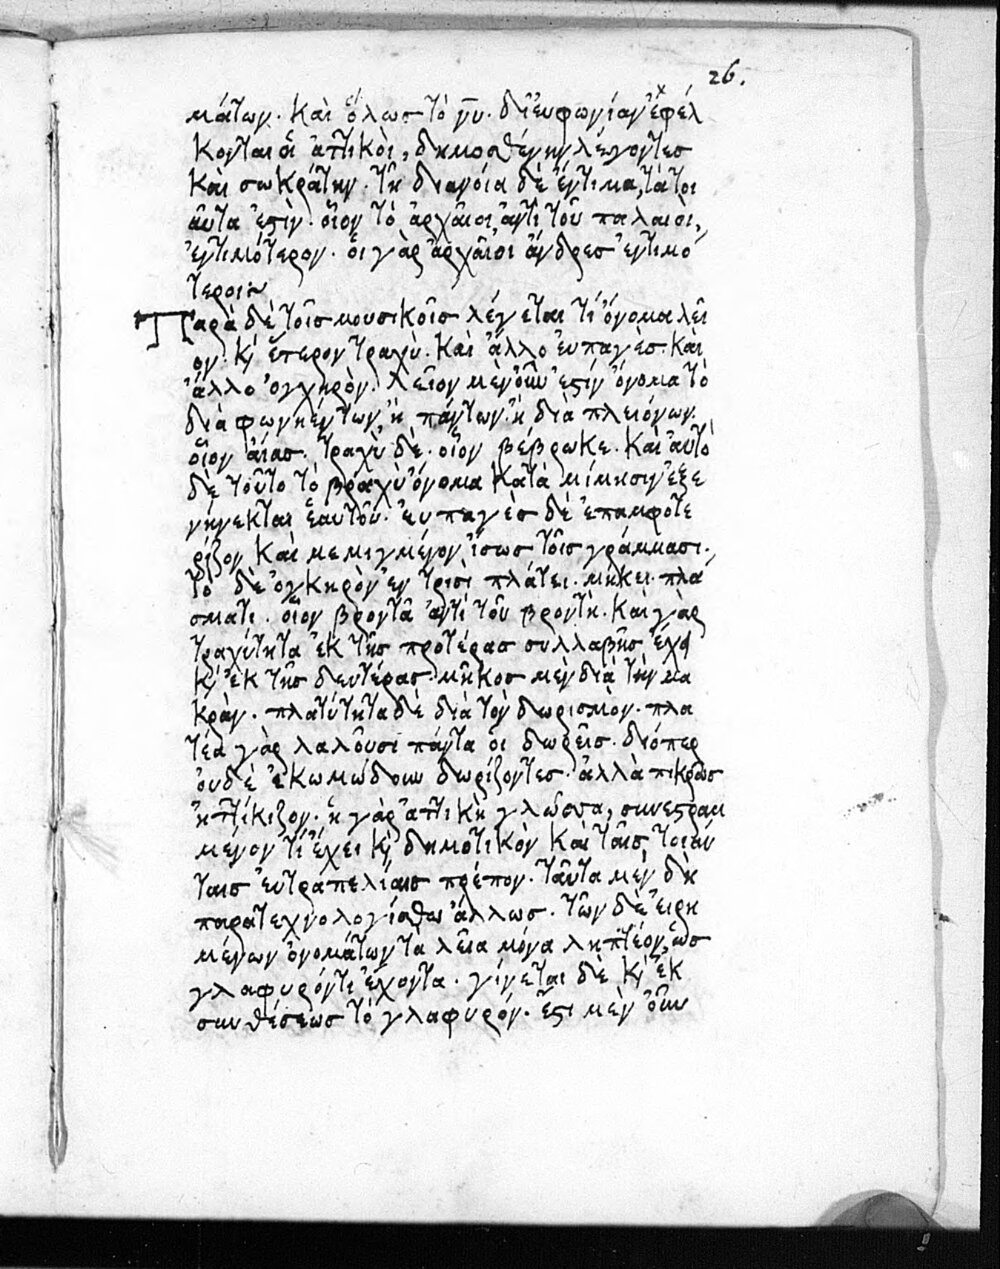 26.
μάτων. καὶ ὅλως τὸ νῦ. δι' ἐυφωνίαν ἐφέλ
κονται ὁι ἀττικοὶ, δημοσθένην λέγοντες
καὶ σωκράτην. τῆ διανοία δὲ ἔντιμα, τὰ τοι
ἀῦτα ἐστὶν. οἷον τὸ ἀρχᾶιοι ἀντὶ τοῦ παλαιὸι,
ἐντιμότερον. ὁι γὰρ ἀρχᾶιοι ἄνδρες ἐντιμό
τεροι~
Παρὰ δὲ τοῖς μουσικοῖς λέγεται τὶ ὄνομα λεῖ
ον. κὶ ἕτερον τραχὺ. καὶ ἄλλο ἐυπαγὲς. καὶ
ἄλλο ὀγχηρὸν. λεῖον μὲν οὖν ἐστὶν ὄνομα τὸ
διὰ φωνηεντων, ἢ πάντων. ἢ διὰ πλειόνων.
οἷον αἴας. τραχὺ δὲ. οἷον βέβρωκε. καὶ αὐτὸ
δὲ τοῦτο τὸ βραχὺ ὄνομα κατὰ μίμησιν ἐξε
νήνεκται ἑαυτοῦ. ἐυπαγὲς δὲ ἐπαμφοτε
ρίζον καὶ μεμιγμένον ἴσως τοῖς γράμμασι.
τὸ δὲ ὀγκηρὸν ἐν τρισὶ πλάτει. μήκει. πλά
σματι. οἷον βροντὰ ἀντὶ τοῦ βροντὴ. καὶ γὰρ
τραχύτητα ἐκ τῆς προτέρας συλλαβῆς ἔχει
κὶ ἐκ τῆς δευτέρας. μῆκος μὲν διὰ τὴν μα
κρὰν. πλατύτητα δὲ διὰ τὸν δωρισμὸν. πλα
τέα γὰρ λαλοῦσι πάντα ὁι δωρεῖς. διόπερ
ὀυδὲ ἐκωμώδουν δωρίζοντες. ἀλλὰ πικρῶς
ἠττίκιζον. ἡ γὰρ ἀττικὴ γλῶσσα, συνεστραμ
μένον τὶ ἔχει κὶ δημοτικὸν καὶ ταῖς τοιάυ
ταις ἐυτραπελίαις πρέπον. ταῦτα μὲν δὴ
παρατεχνολογίσθω ἄλλως. τῶν δὲ ἐιρη
μένων ὀνομάτων τὰ λεῖα μόνα ληπτέον, ὡς
γλαφυρόν τι ἔχοντα. γίνεται δὲ κὶ ἐκ
συνθέσεως τὸ γλαφυρόν. ἔστι μὲν οὖν